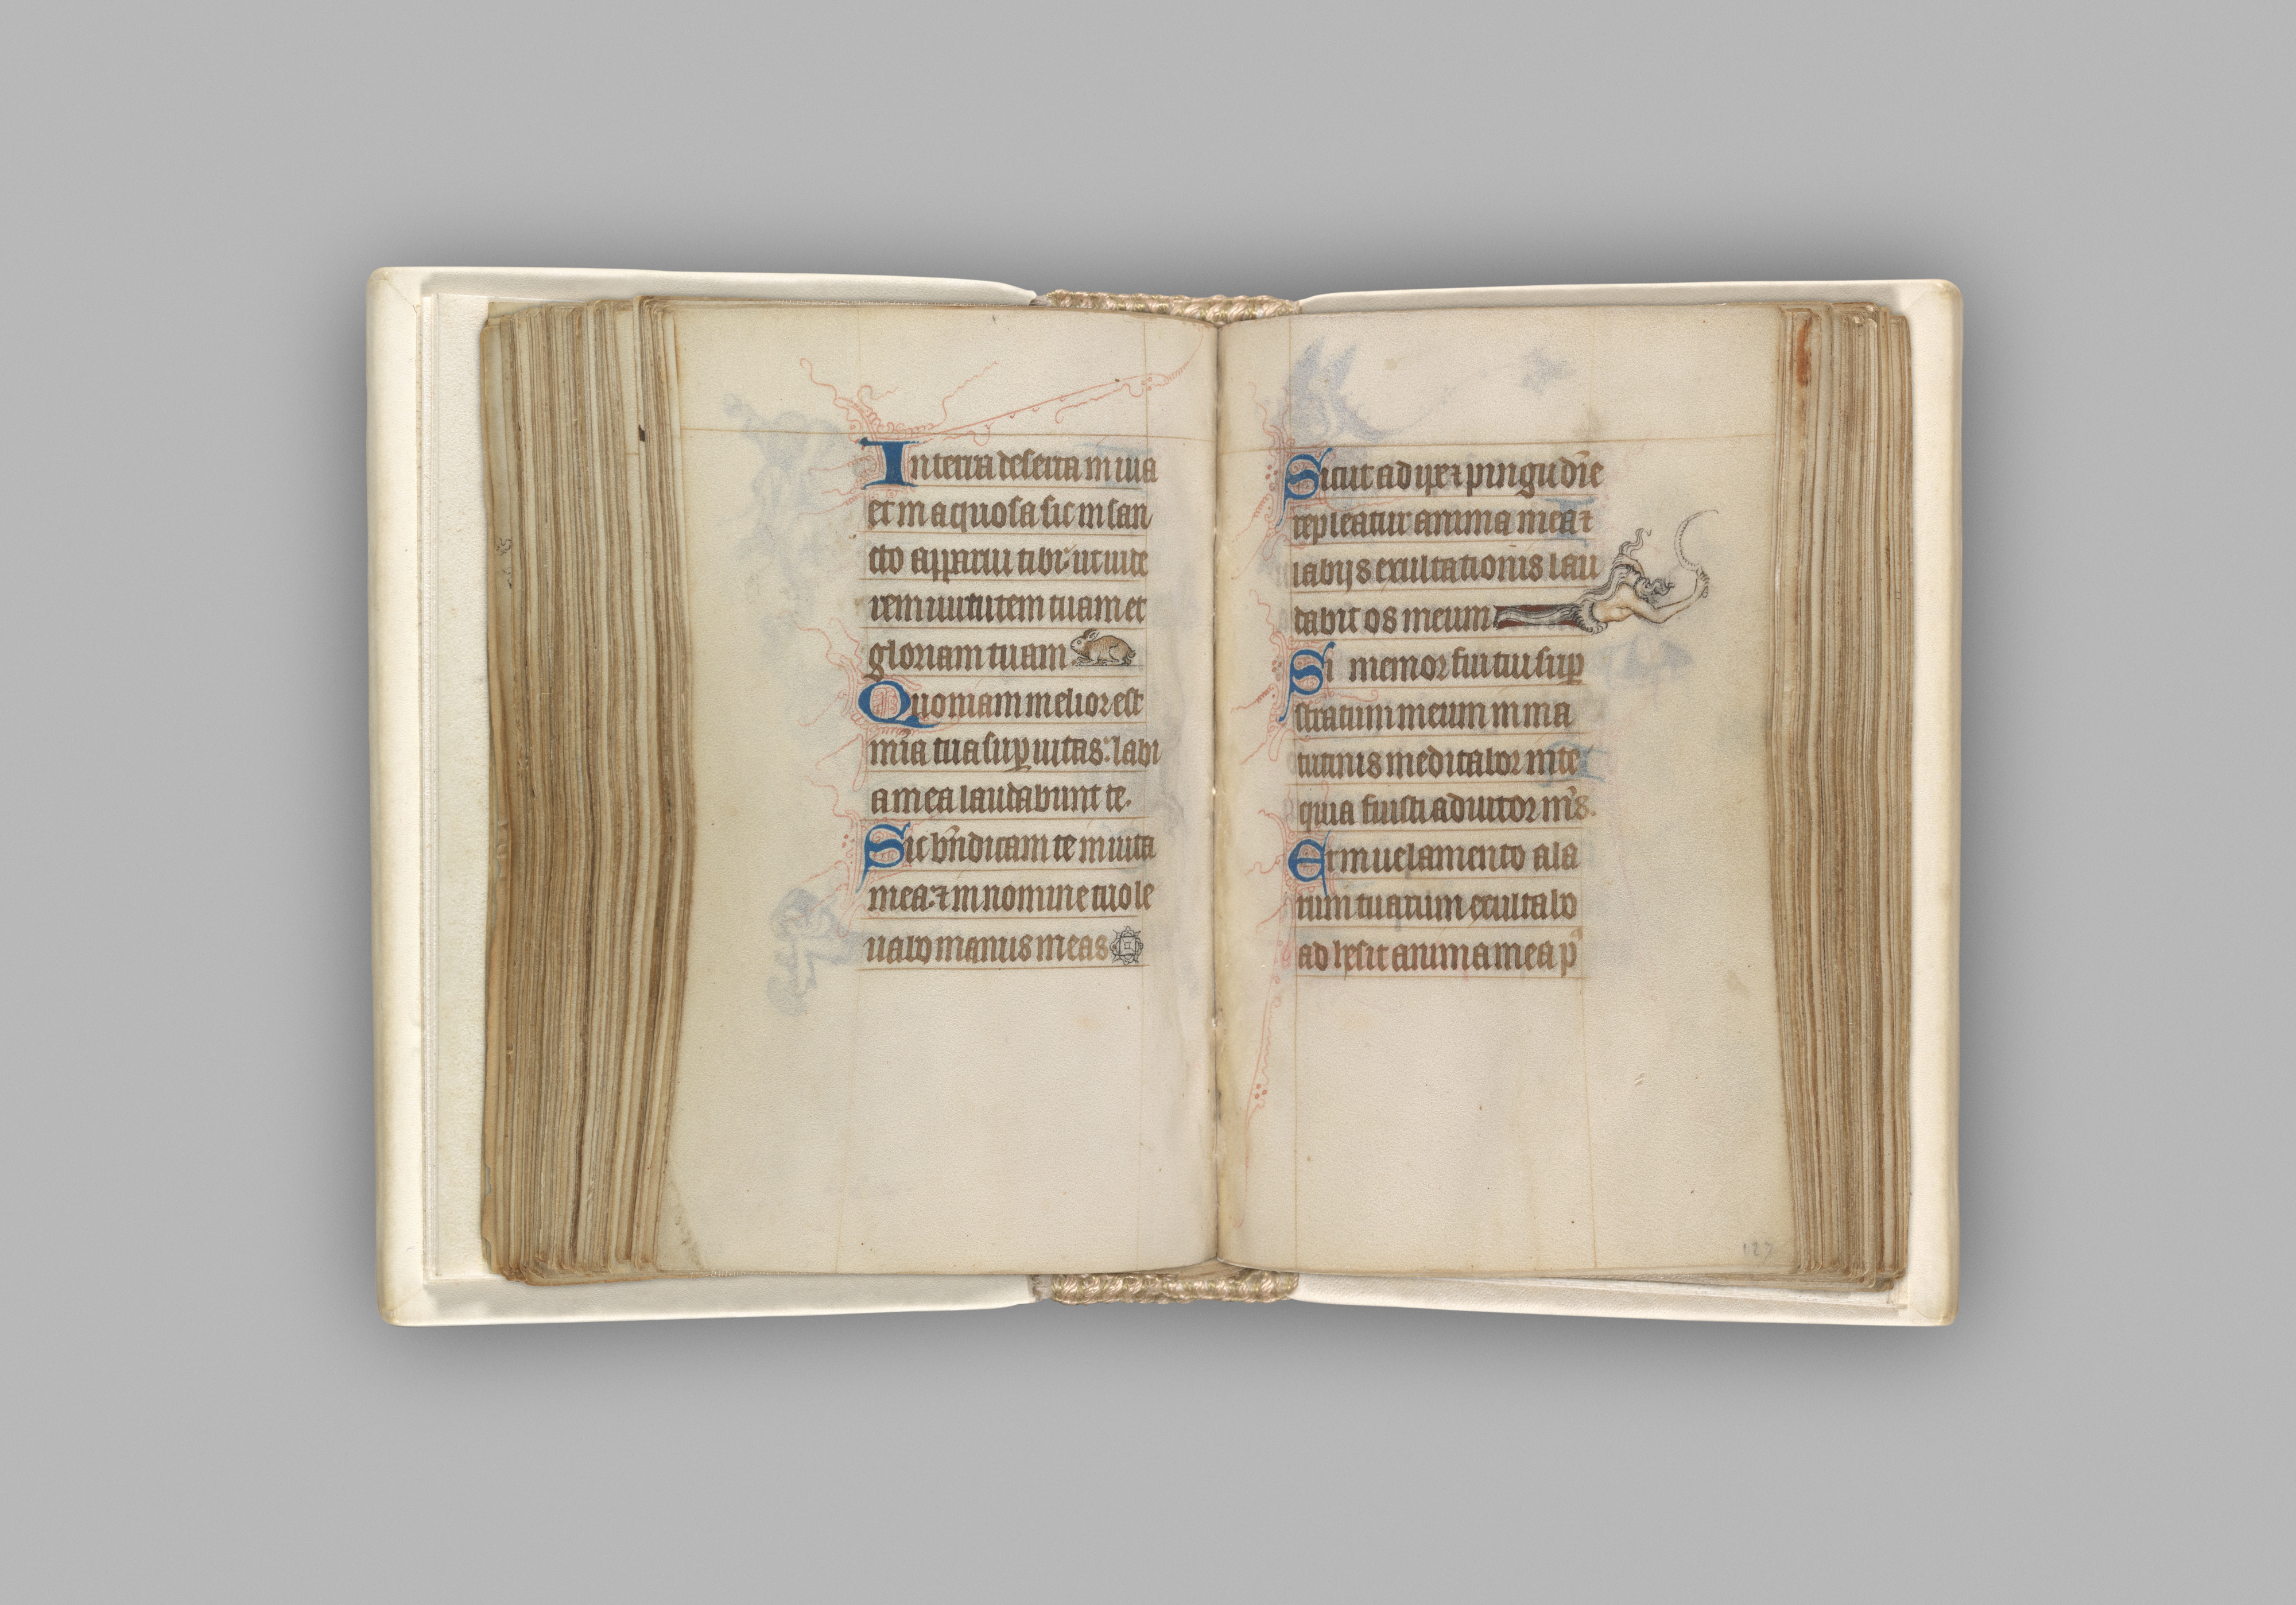 In terra deserta inuia
et in aquosa sic in san
cto apparui tibi: ut uide
rem uirtutem tuam et
gloriam tuam
Quoniam melior est
mĩa tua sup̱ uitas: labi
a mea laudabunt te.
Sic bñdicam te in uita
mea: ⁊ in nomine tuo le
uabo manus meas
Sicut adipe ⁊ pingudĩe
repleatur anima mea ⁊
labijs exultationis lau
dabit os meum
Si memor fui tui sup̱
stratum meum in ma
tutinis meditabor in te
quia fuisti adiutor mẽs.
Et in uelamento ala
rum tuarum exultabo
adhesit anima mea p̃
127